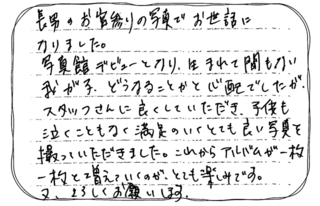 長男のお宮参りの写真でお世話に
なりました。
写真館デビューとなり、生まれて間もない
我が子、どうなることかと心配でしたが、
スタッフさんに良くしていただき、子供も
泣くこともなく満足のいくとても良い写真を
撮っていただきました。これからアルバムが一枚
一枚と増えていくのが、とても楽しみです。
又、よろしくお願いします。